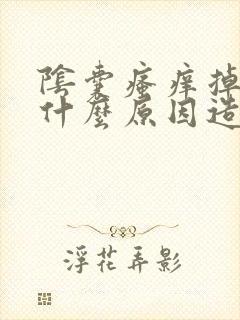 陰囊瘙癢掉
什麼原因造
浮花弄影